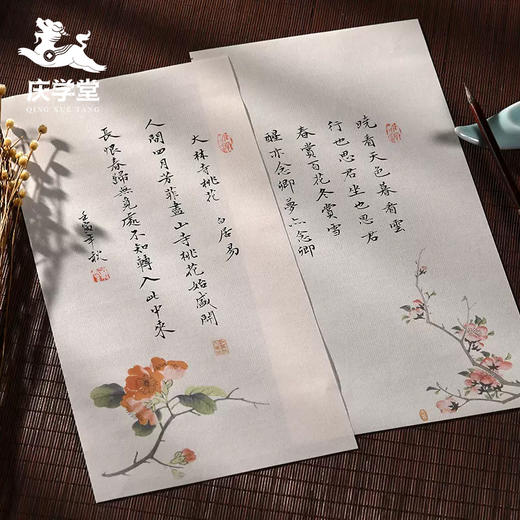 庆学堂
QING XUE TANG
晓看天色暮看雲
行也思君坐也思君
春賞百花冬賞雪
醒亦念卿夢亦念卿
大林寺桃花 白居易
人間四月芳菲盡山寺桃花始盛開
長恨春歸無覓處不知轉入此中來
壬寅年秋